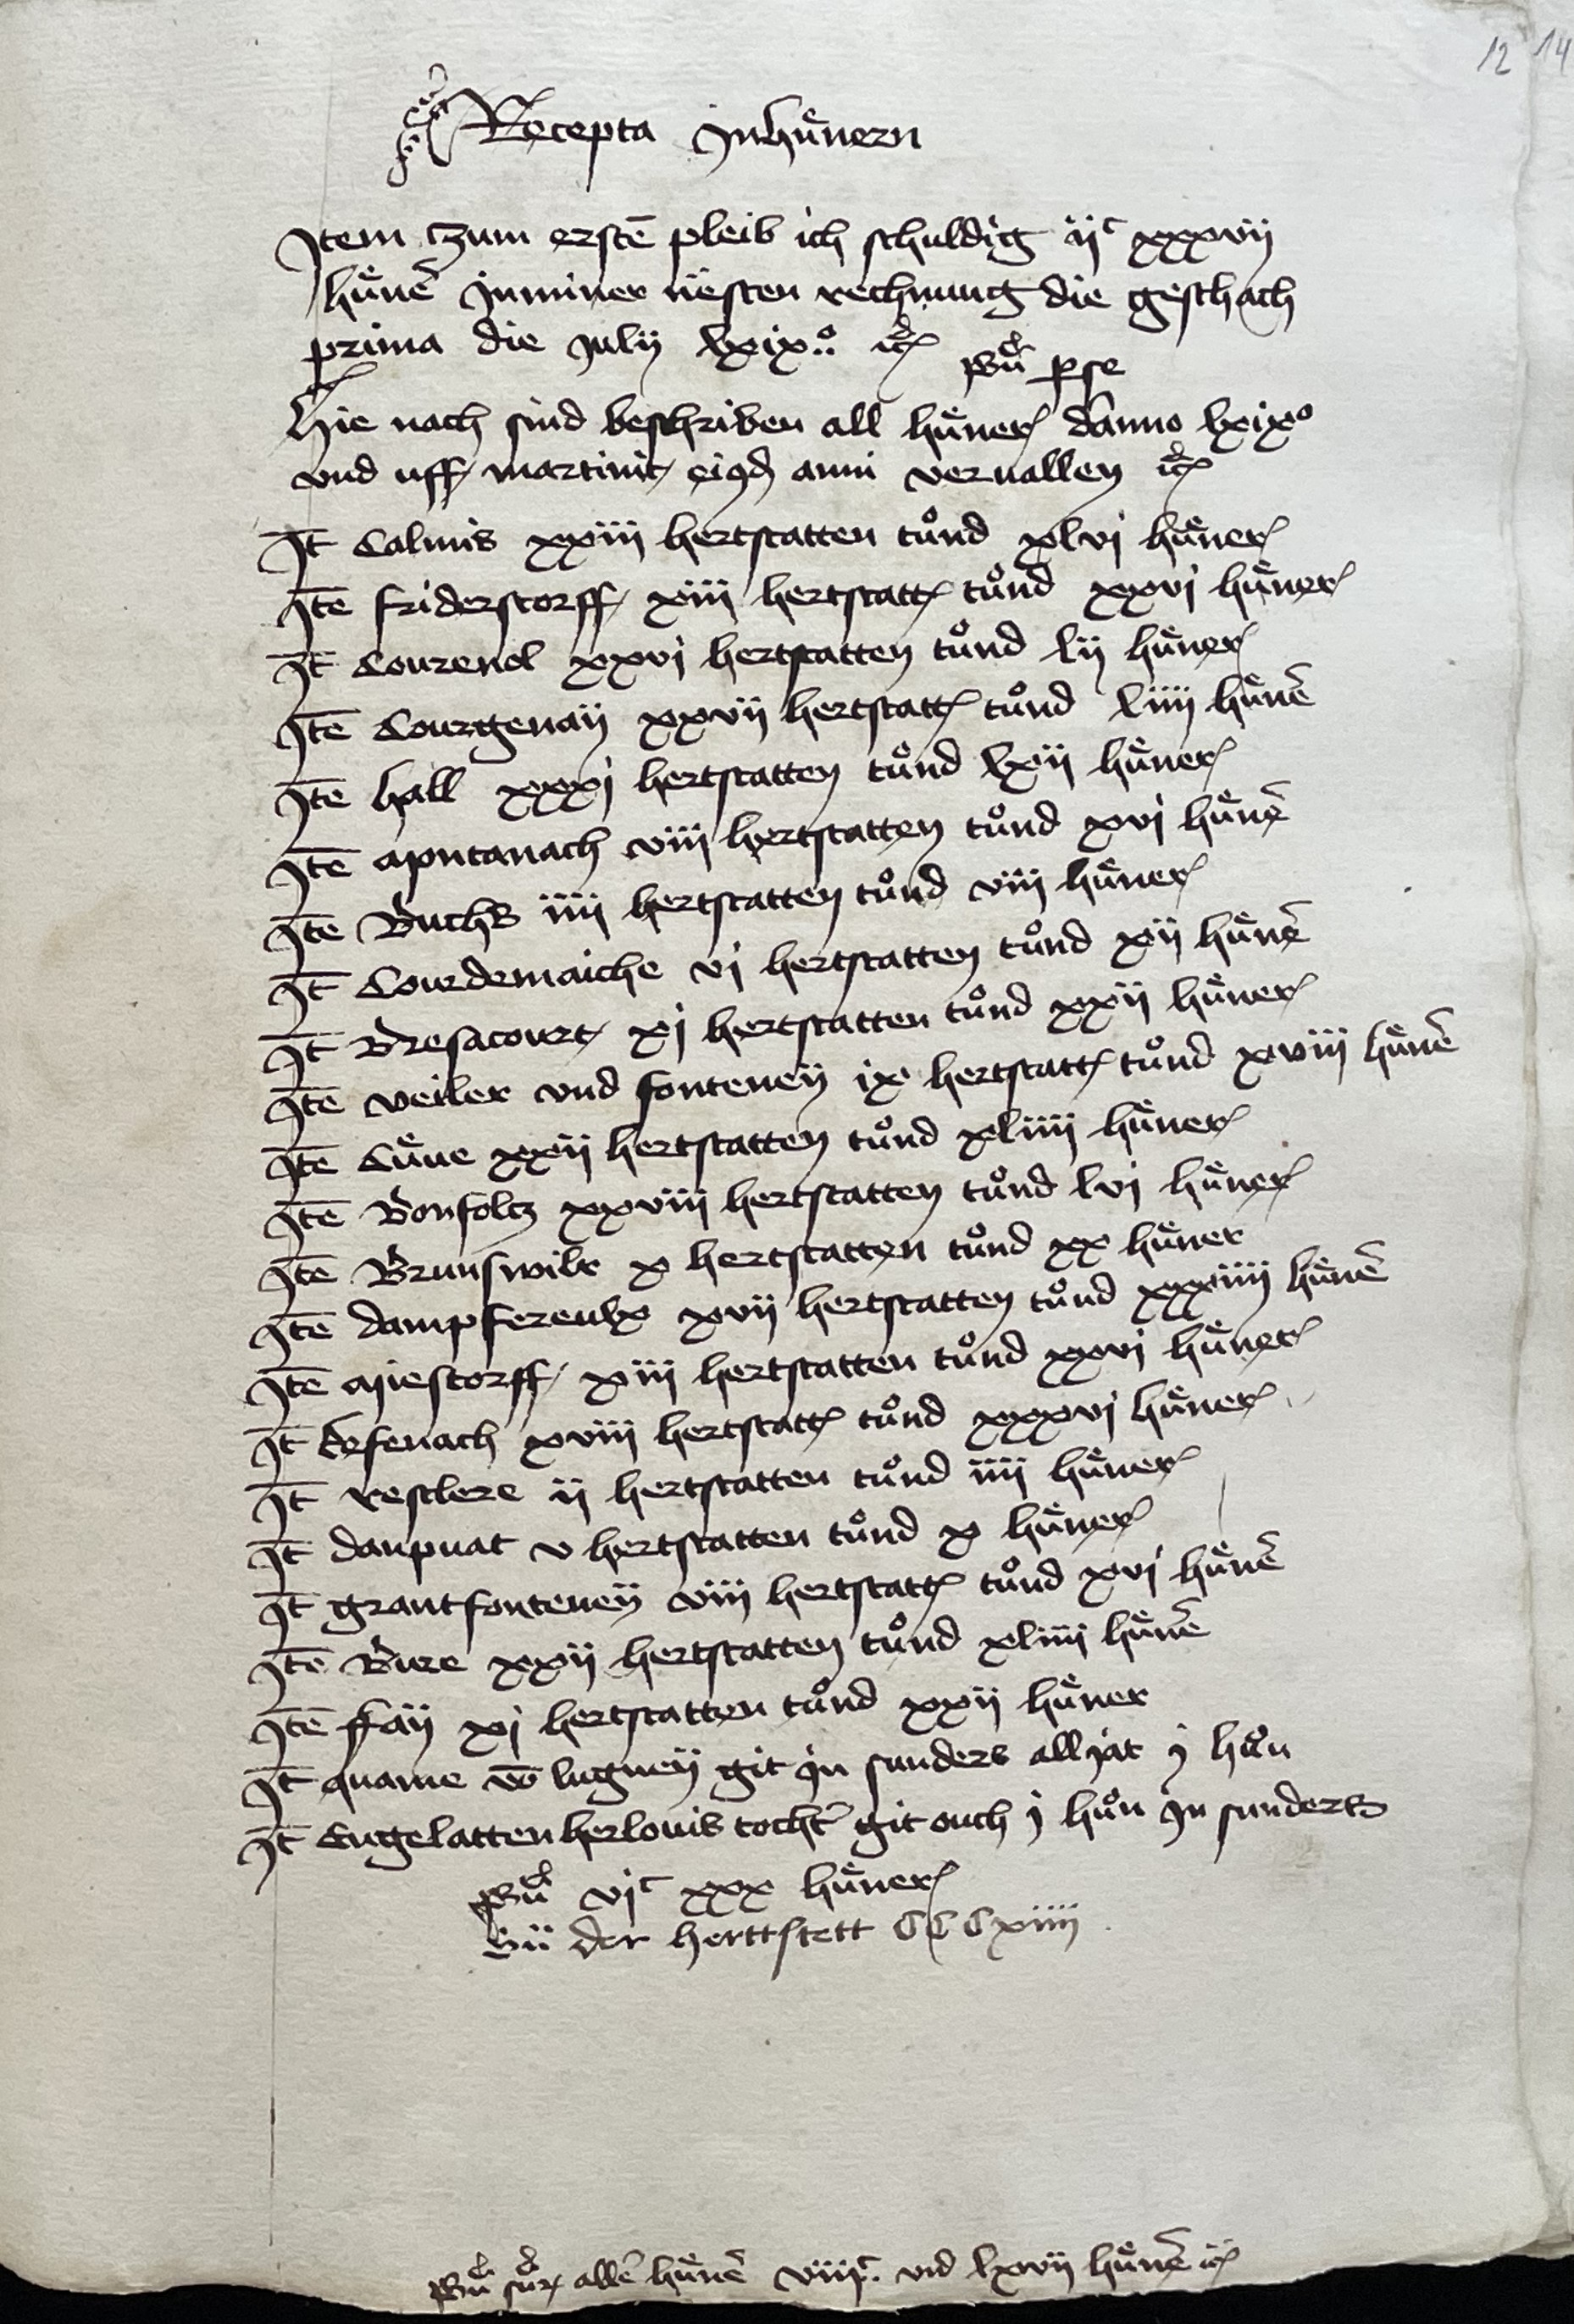 12 14
Recepta jn hůnern
Jtem tzum erstē pleib ich schuldig ijc xxxvij
hůnē jn miner nësten rechnung die geschach
prima die julij lxixo. etc
Sū p se
Hie nach sind beschriben all hůner danno lxixo
vnd uff martini eiusdē anni veruallen etc
Jt Calmis xxiij hertstatten tůnd xlvj hůner
Jtē friderstorff xiij hertstatt tůnd xxvj hůner
Jt Courenol xxvj hertstatten tůnd lij hůner
Jtē Courgenaÿ xxvij hertstatt tůnd liiij hůnē
Jtē hall xxxj hertstatten tůnd lxij hůner
Jtē Mputanach viij hertstatten tůnd xvj hůnē
Jtē Buchs iiij hertstatten tůnd viij hůner
Jt Courdemaiche vj hertstatten tůnd xij hůnē
Jt Bresacourt xj hertstatten tůnd xxij hůner
Jtē veiler vnd fonteneÿ ix hertstatt tůnd xviij hůnē
Jtē Cüue xxij hertstatten tůnd xliiij hůner
Jtē Bonfoltz xxviij hertstatten tůnd lvj hůner
Jtē Brunswilr x hertstatten tůnd xx hůner
Jtē dampfereulx xvij hertstatten tůnd xxxiiij hůnē
Jtē Miestorff xiij hertstatten tůnd xxvj hůner
Jt kefenach xviij hertstatt tůnd xxxvj hůner
Jt resclere ij hertstatten tůnd iiij hůner
Jt danpuat v hertstatten tůnd x hůner
Jt grantfonteneÿ viij hertstatt tůnd xvj hůnē
Jtē Bure xxij hertstatten tůnd xliiij hůnē
Jtē ffaÿ xj hertstatten tůnd xxij hůner
Jt quame vō lugneÿ git jn sunders all jat j hůn
Jt Engelatten herlouis tocht git ouch j hůn jn sunders
Sū vjc xxx hůner
Sū der herttstett CCCxiiij
Sū sūr allē hůnē viijc. vnd lxvij hůnē etc